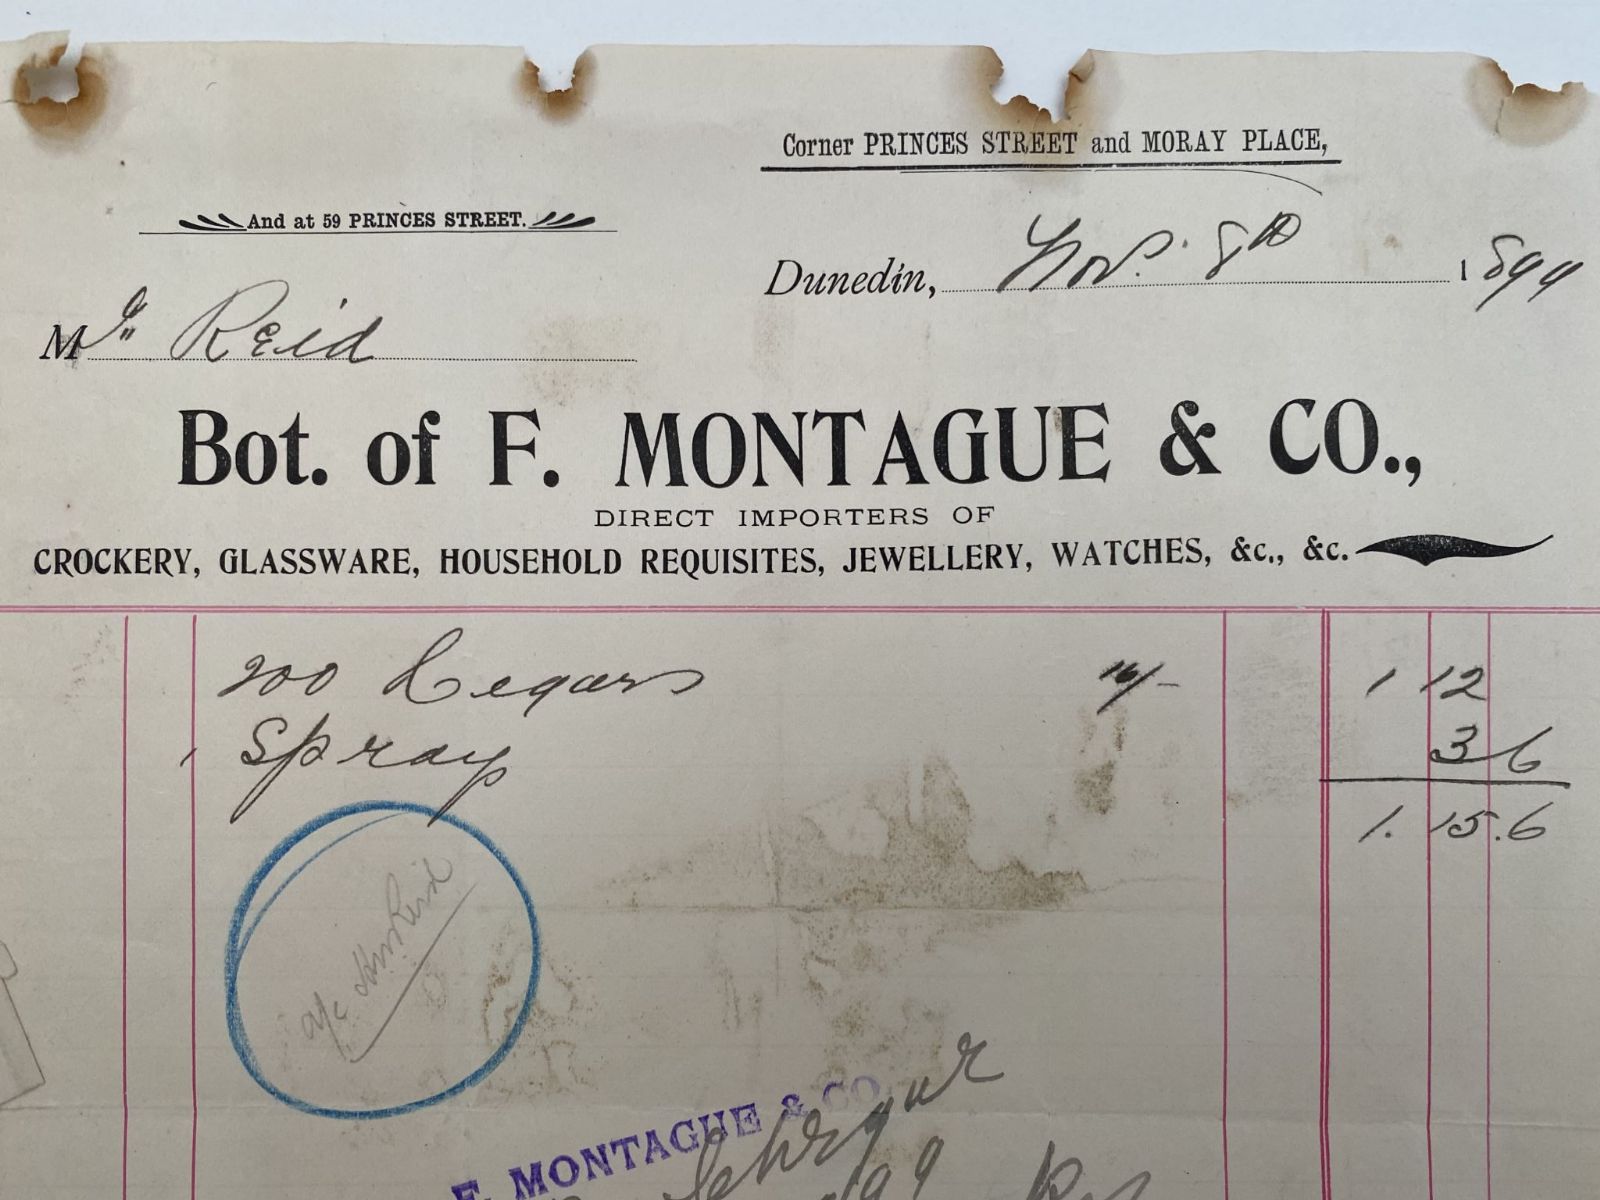 Corner PRINCES STREET and MORAY PLACE,
And at 59 PRINCES STREET.
Dunedin, Nov. 8th 1899
Mr Reid
Bot. of F. MONTAGUE & CO.,
DIRECT IMPORTERS OF
CROCKERY, GLASSWARE, HOUSEHOLD REQUISITES, JEWELLERY, WATCHES, &c., &c.
200 Cegars 16/- 1 12
1 Spray 3 6
1. 15. 6
a/c Reid
F. MONTAGUE & CO.
99